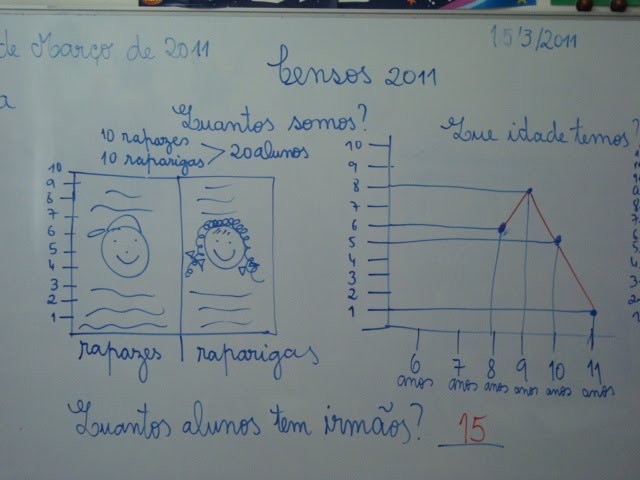 de Março de 2011
15/3/2011
Censos 2011
a
Quantos somos?
10 rapazes
10 raparigas > 20 alunos
10
9
8
7
6
5
4
3
2
1
rapazes | raparigas
Que idade temos?
10
9
8
7
6
5
4
3
2
1
6 7 8 9 10 11
anos anos anos anos anos anos
Quantos alunos tem irmãos? 15